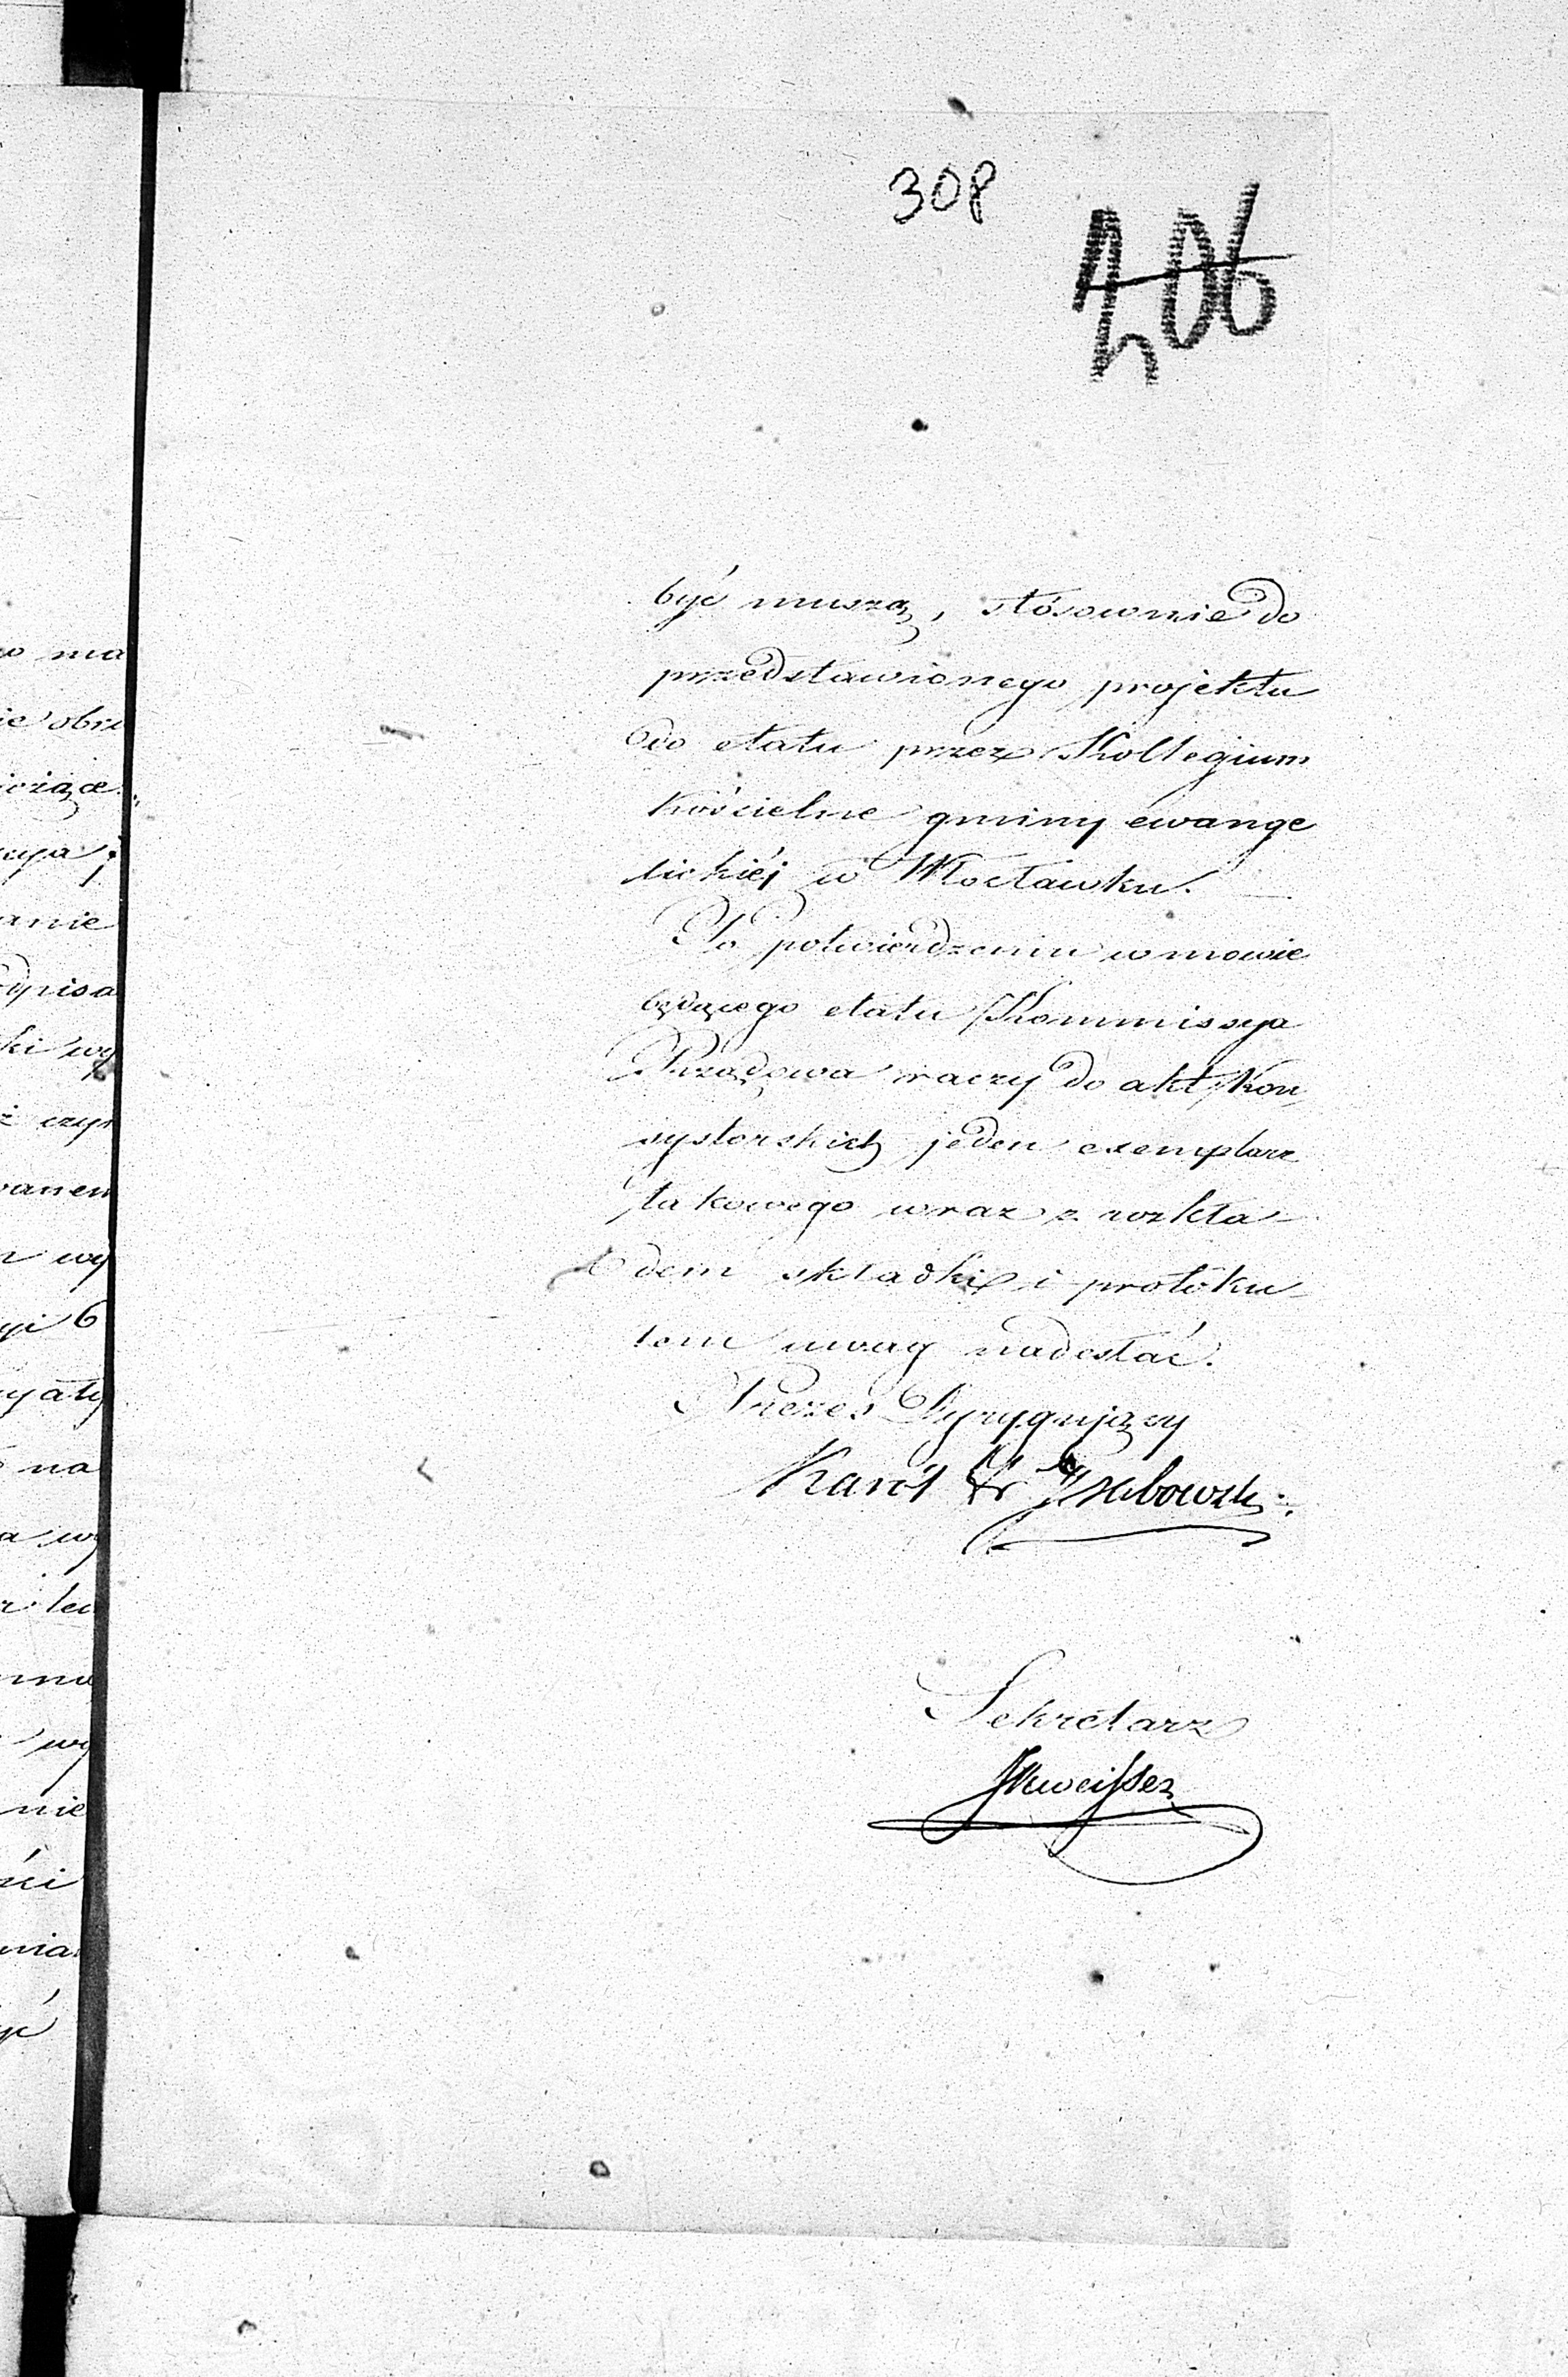 308
206
być muszą, stósownie do
przedstawionego projektu
do etatu przez Kollegium
kościelne gminy ewange
lickiéj w Włocławku.
Po potwierdzeniu w mowie
będącego etatu Kommissya
Rządowa raczy do akt Kon,
systorskich jeden exemplarz
takowego wraz z rozkła-
dem składki i protoku-
łem uwag nadesłać.
Prezes Dyrygujący
Sekretarz
o ma
ie obra
anie
dpisa
ki wy
ż czyn
wanem
wy
yi 6
yały
na
a wy
wy
nie
ści